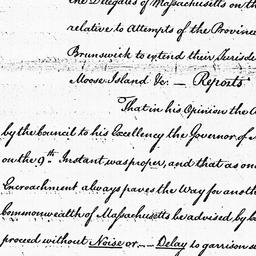 the Delegates of Massachusetts on th
relative to Attempts of the Province
Brunswick to extend their Jurisde
Moose Island &c. — Reports
That in his Opinion the A
by the Council to his Excellency the Governor of
on the 9th Instant was proper, and that as one
Encroachment always paves the Way for anoth
Commonwealth of Massachusetts be advised by
proceed without Noise or — Delay to garrison